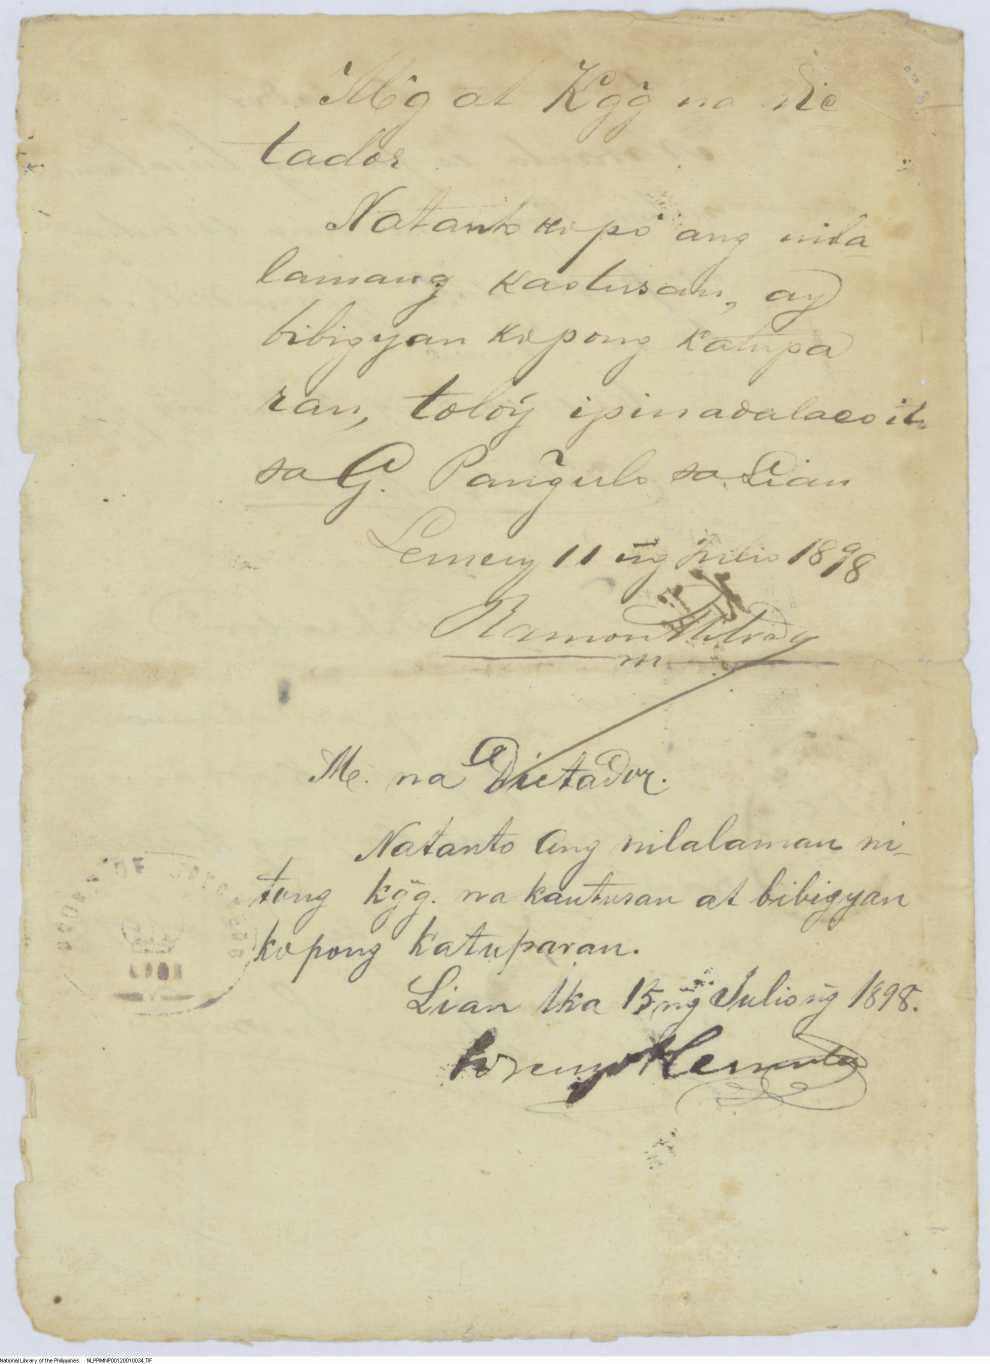 Mg̃ at Kgg̃ na Dic
tador
Natanto ko po ang nila-
lamang kaotusan, ay
bibigyan ko pong katupa
ran, toloy ipinadalaco ito
sa G. Pang̃ulo sa Lian
Lemery 11 ñg Julio 1898
Ramon
M. na Dictador.
Natanto ang nilalaman ni-
tong kgg̃. na kautusan at bibigyan
ko pong katuparan.
Lian ika 15 ñg Julio ñg 1898.
National Library of the Philippines NLPPIMNP00120010034.TIF